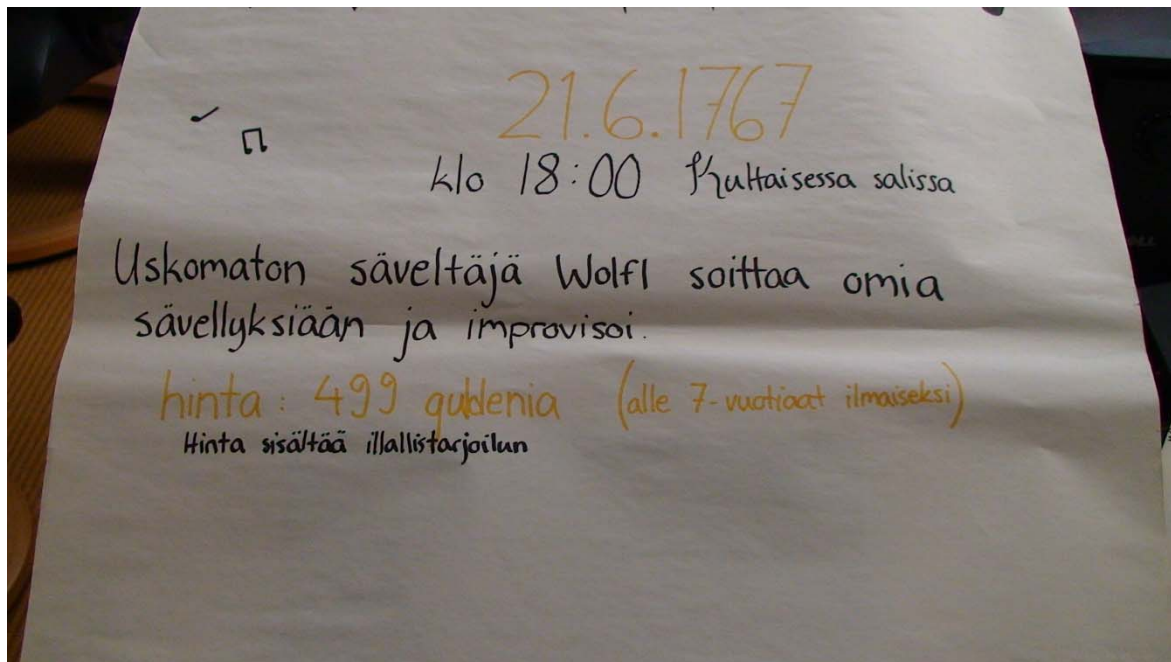 21.6.1767
klo 18:00 Kultaisessa salissa
Uskomaton säveltäjä Wolfl soittaa omia
sävellyksiään ja improvisoi.
hinta: 499 guldenia (alle 7-vuotiaat ilmaiseksi)
Hinta sisältää illallistarjoilun